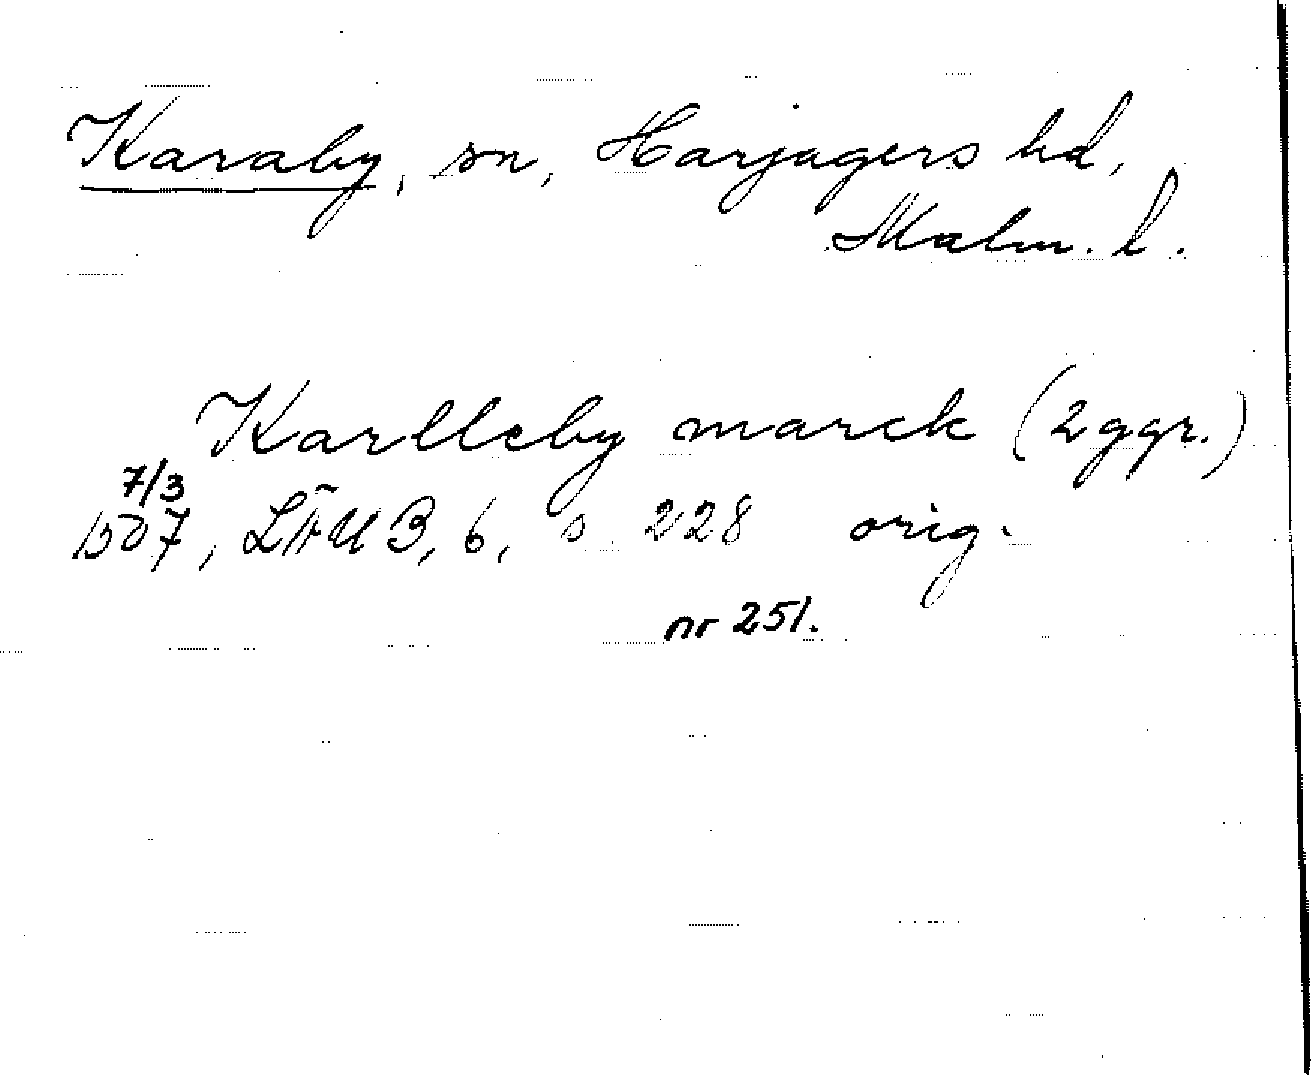 Karaby, sn, Harjagers hd,
Malm. l.
Karlleby marck (2 ggr.)
7/3
1507, LÄUB, 6, s. 228 orig.
nr 251.